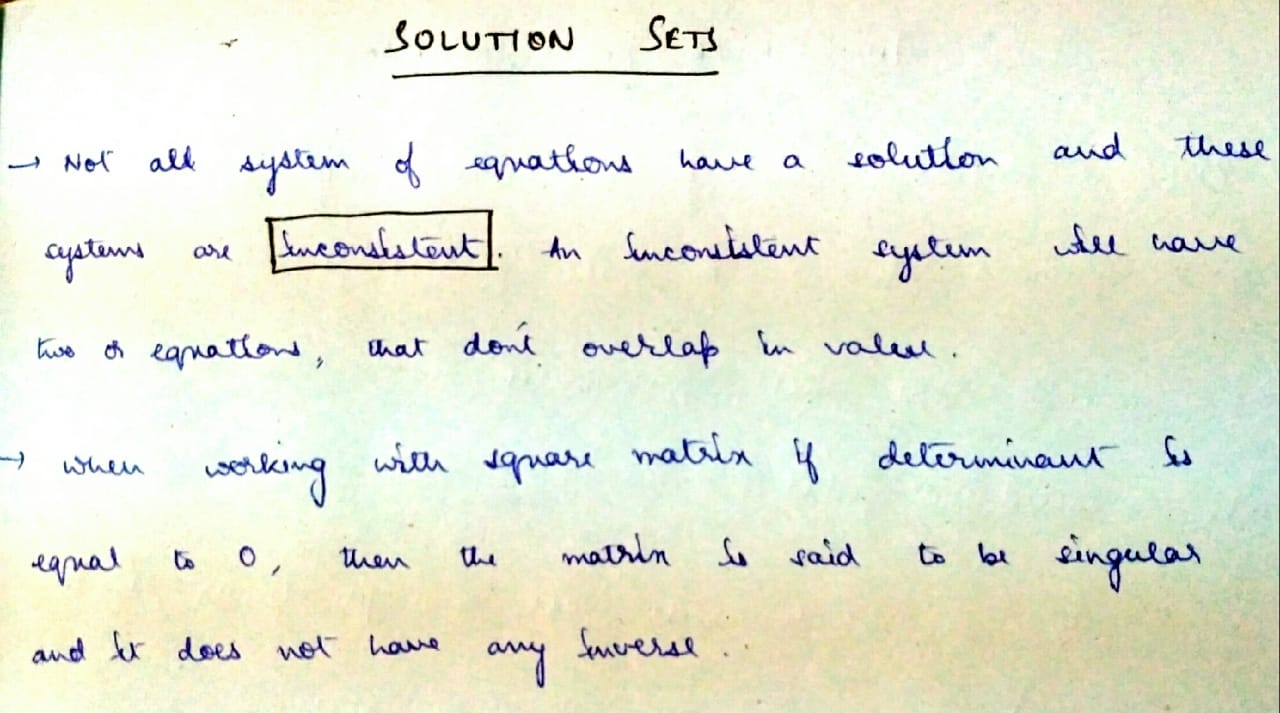 SOLUTION SETS
→ Not all system of equations have a solution and these
systems are inconsistent. An inconsistent system will have
two or equations, that don't overlap in value.
→ when working with square matrix if determinant is
equal to 0, then the matrix is said to be singular
and it does not have any inverse.